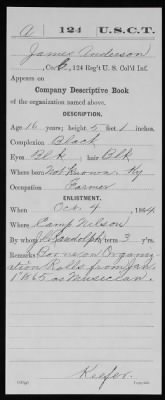 A | 124 | U.S.C.T.
James Anderson
Co. G, 124 Reg't U. S. Col'd Inf.
Appears on
Company Descriptive Book
of the organization named above.
DESCRIPTION.
Age 16 years; height 5 feet 1 inches.
Complexion Black
Eyes Blk ; hair Blk
Where born Not Known, Ky
Occupation Farmer
ENLISTMENT.
When Oct. 4, 1864.
Where Camp Nelson
By whom Randolph; term 3 y'rs.
Remarks: Borne on Organiz
ation Rolls from Jan.
1865 as Musician.
Keefer
Copyist.